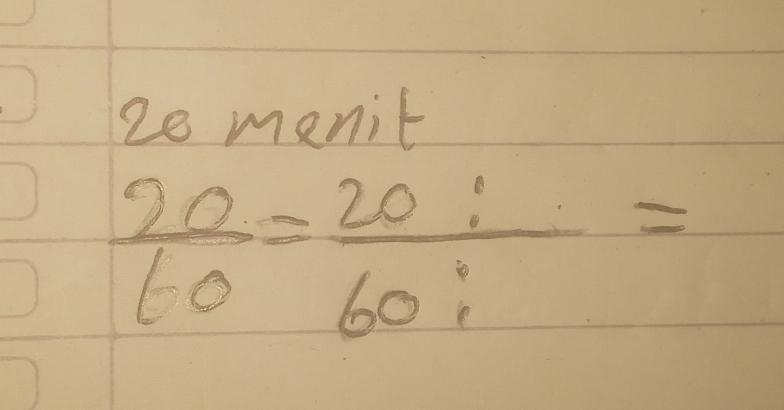 20 menit
20/60 = 20 : / 60 : =